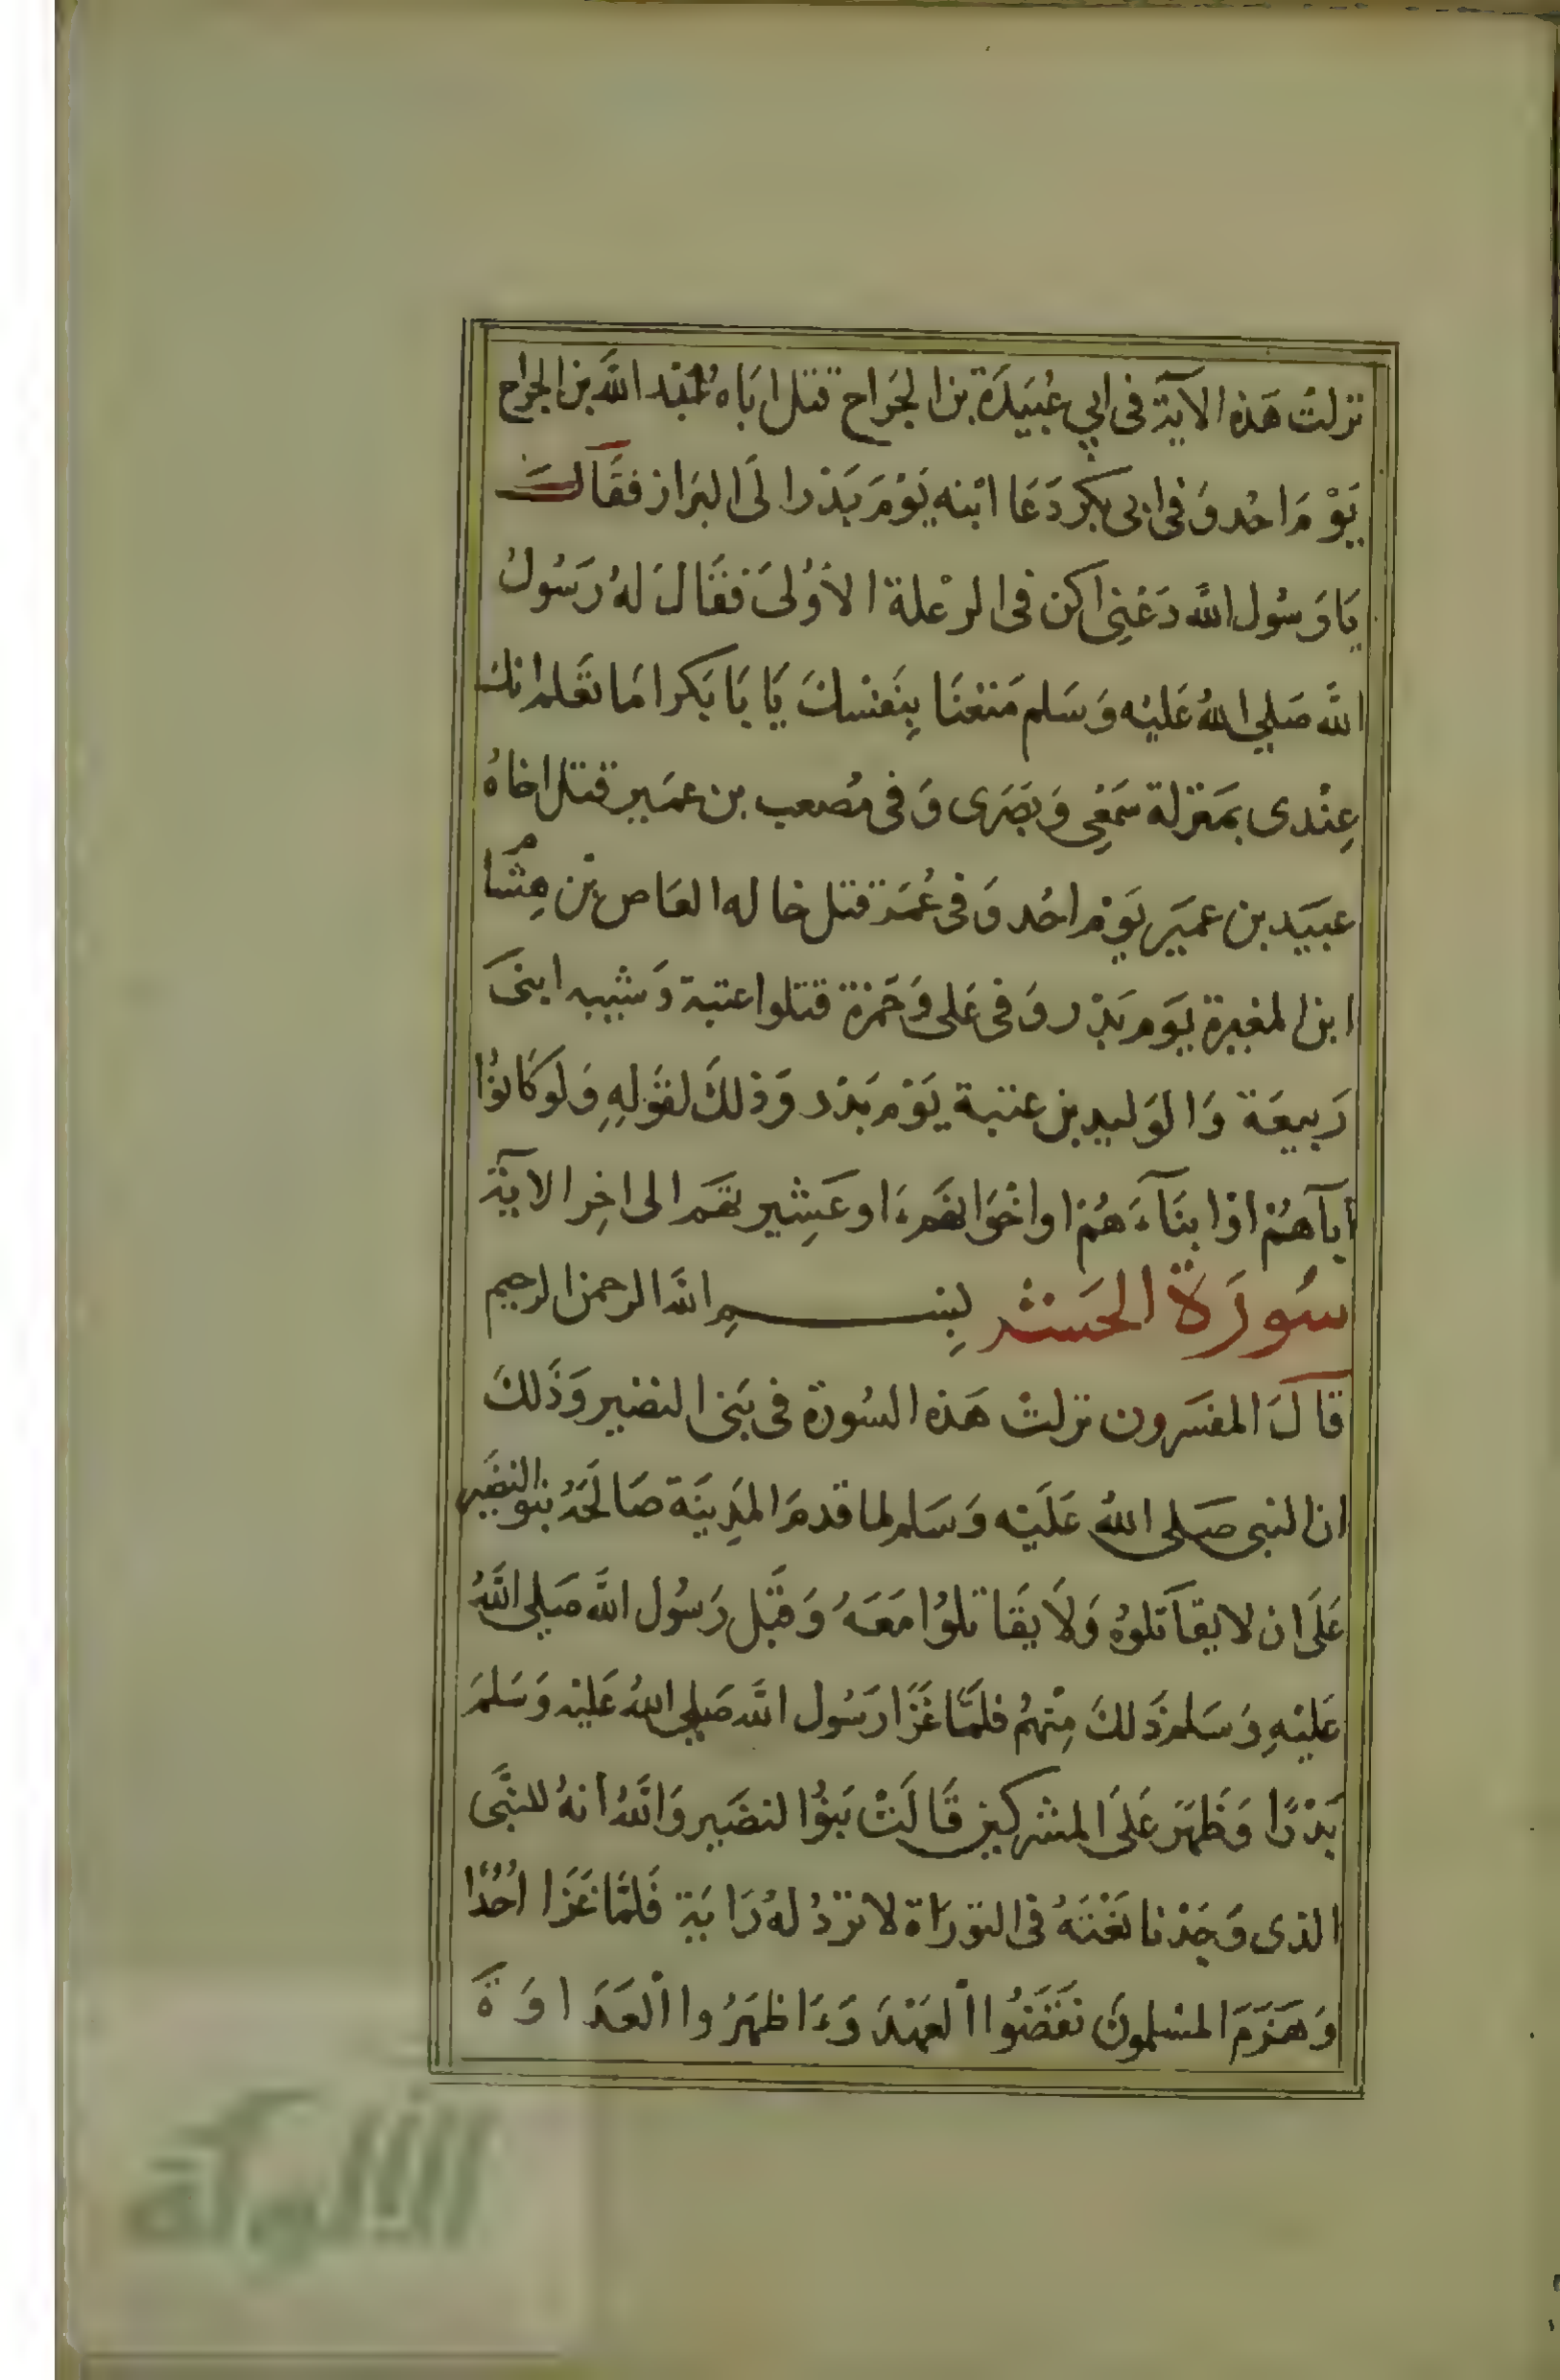 نزلت هَذه الآية فى ابي عُبَيدَة بن الجَراح قتل ابَاه عبد الله بن الجراح
يَوْمَ احُد وَفى ابى بكر دَعَا ابْنه يَوْمَ بَدْر الَى البَراز فقَالَ
يَا رَسُول الله دَعْنِى اكن فى الرعْلة الأوُلىَ فقَالَ لهُ رَسُولُ
الله صَلي اللهُ عَليْه وَسَلم مَتعْنَا بِنَفْسكَ يَا بَا بَكر امَا تعْلم انك
عِنْدى بمَنزلة سَمْعِى وَبَصَرى وَفى مصُعب بن عمَير قتل اخاهُ
عبَيَد بن عميَر يَوْم احُد وَفى عُمَر قتل خاله العَاص بْن هِشام
ابن المغيرة يَوَم بَدْر وَفى عَلى وَحَمْزة قتلوا عتبة وَشيبه ابنىَ
رَبيعَة وَالوَليد بن عتبة يَوْم بَدْر وَذلكَ لقوَلِهِ وَلو كَانوُا
آبآهُمْ اوْ ابنَآءَهُمْ او اخْوَانهَم او عَشِيرتهَم الى اخِر الآية
سُورَة الحَشر بِسْمِ الله الرحمن الرحيم
قالَ المفسَرون نزلتْ هَذه السُورَة فى بَنى النضير وَذَلكَ
ان النبى صَلى اللهُ عَلَيْه وَسَلم لما قدمَ المَدِينَة صَالحَهُ بنو النضَير
عَلَى ان لا يقاتَلوُه وَلَا يقَاتلوُا مَعَهُ وَقبَل رَسُول الله صَلي اللهُ
عَليْهِ وَسَلم ذَلكَ مِنْهمُ فلمَّا غَزَا رَسُول الله صَلي اللهُ عَليْه وَسَلمَ
بَدْرًا وَظَهَرَ عَلَى المشركين قَالَتْ بَنوُا النضَير وَاللهُ انهُ للنبَّى
الذى وَجَدْنا نَعْتَهُ فى التورَاة لا تردُ لهُ رَايَة فَلمَّا غَزَا اُحُدًا
وَهَزَمَ المسْلمونَ نقَضَوُا الْعَهْدَ وَءَاظهَرُوا الْعَدَاوَةَ
الألوكة